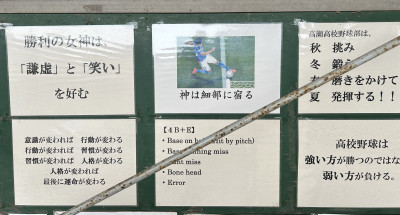 勝利の女神は、
「謙虚」と「笑い」
を好む
神は細部に宿る
高瀬高校野球部は、
秋 挑み
冬 鍛え
磨きをかけて
夏 発揮する！！
意識が変われば 行動が変わる
行動が変われば 習慣が変わる
習慣が変われば 人格が変わる
人格が変われば
最後に運命が変わる
【4B+E】
・Base on b (hit by pitch)
・Ba ning miss
・ nt miss
・Bone head
・Error
高校野球は
強い方が勝つのではな
弱い方が負ける。